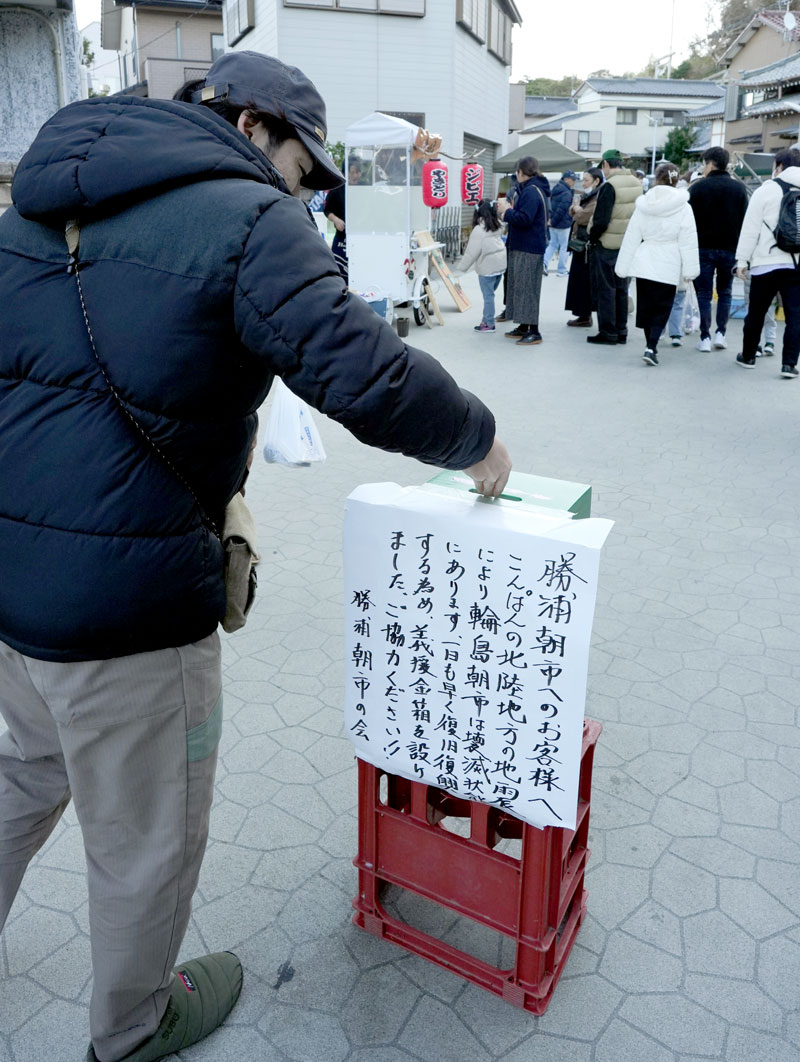 勝浦朝市へのお客様へ
こんぱんの北陸地方の地震
により輪島朝市は壊滅状態
にあります、一日も早く復旧復興
する為め、義援金箱を設け
ました、ご協力ください!!
勝浦朝市の会
ジビエ